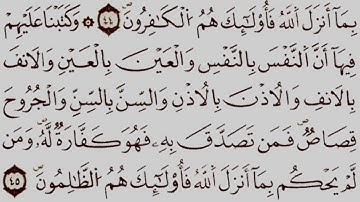 بِمَا أَنزَلَ ٱللَّهُ فَأُوْلَـٰٓئِكَ هُمُ ٱلْكَـٰفِرُونَ ٤٤ ۞ وَكَتَبْنَا عَلَيْهِمْ
فِيهَآ أَنَّ ٱلنَّفْسَ بِٱلنَّفْسِ وَٱلْعَيْنَ بِٱلْعَيْنِ وَٱلْأَنفَ
بِٱلْأَنفِ وَٱلْأُذُنَ بِٱلْأُذُنِ وَٱلسِّنَّ بِٱلسِّنِّ وَٱلْجُرُوحَ
قِصَاصٌ ۚ فَمَن تَصَدَّقَ بِهِۦ فَهُوَ كَفَّارَةٌ لَّهُۥ ۚ وَمَن
لَّمْ يَحْكُم بِمَآ أَنزَلَ ٱللَّهُ فَأُوْلَـٰٓئِكَ هُمُ ٱلظَّـٰلِمُونَ ٤٥